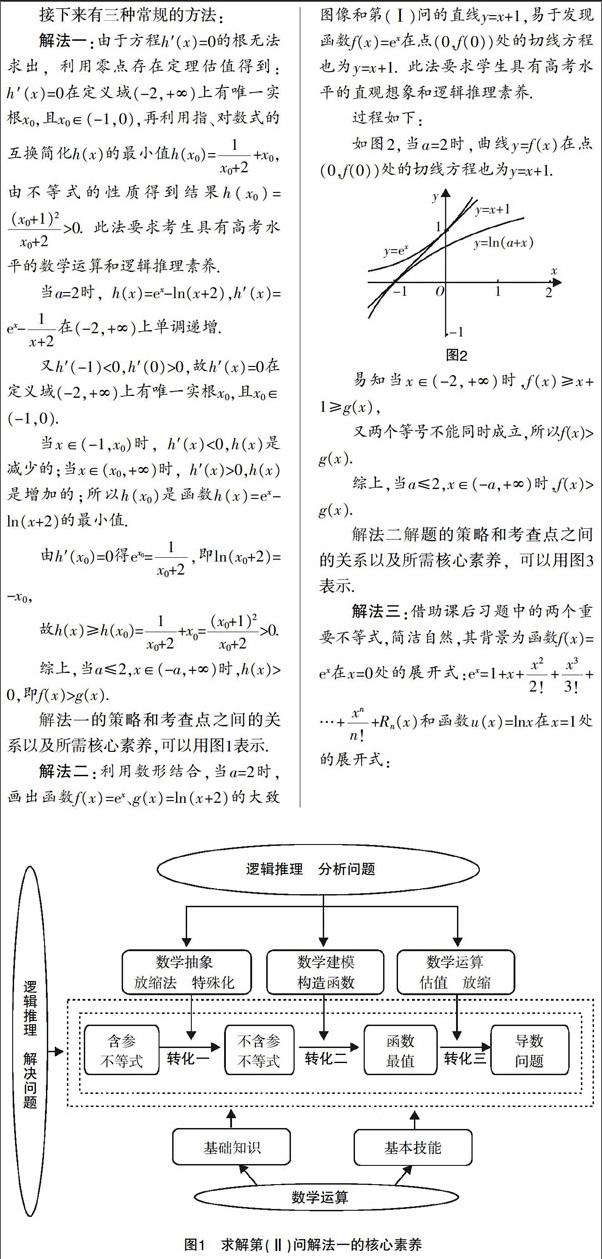 接下来有三种常规的方法：
解法一：由于方程h′(x)=0的根无法
求出，利用零点存在定理估值得到：
h′(x)=0在定义域(-2,+∞)上有唯一实
根x₀,且x₀∈(-1,0),再利用指、对数式的
互换简化h(x)的最小值h(x₀)=1/(x₀+2)+x₀,
由不等式的性质得到结果h(x₀)=
(x₀+1)²/(x₀+2)>0. 此法要求考生具有高考水
平的数学运算和逻辑推理素养.
当a=2时，h(x)=eˣ-ln(x+2),h′(x)=
eˣ-1/(x+2)在(-2,+∞)上单调递增.
又h′(-1)<0,h′(0)>0,故h′(x)=0在
定义域(-2,+∞)上有唯一实根x₀,且x₀∈
(-1,0).
当x∈(-1,x₀)时，h′(x)<0,h(x)是
减少的;当x∈(x₀,+∞)时，h′(x)>0,h(x)
是增加的；所以h(x₀)是函数h(x)=eˣ-
ln(x+2)的最小值.
由h′(x₀)=0得e^x₀=1/(x₀+2),即ln(x₀+2)=
-x₀,
故h(x)≥h(x₀)=1/(x₀+2)+x₀=(x₀+1)²/(x₀+2)>0.
综上,当a≤2,x∈(-a,+∞)时,h(x)>
0,即f(x)>g(x).
解法一的策略和考查点之间的关
系以及所需核心素养,可以用图1表示.
解法二：利用数形结合,当a=2时,
画出函数f(x)=eˣ、g(x)=ln(x+2)的大致
图像和第(Ⅰ)问的直线y=x+1,易于发现
函数f(x)=eˣ在点(0,f(0))处的切线方程
也为y=x+1. 此法要求学生具有高考水
平的直观想象和逻辑推理素养.
过程如下：
如图2,当a=2时,曲线y=f(x)在点
(0,f(0))处的切线方程也为y=x+1.
y
y=x+1
1
y=eˣ
y=ln(a+x)
x
-1
O
1
2
-1
图2
易知当x∈(-2,+∞)时,f(x)≥x+
1≥g(x),
又两个等号不能同时成立,所以f(x)>
g(x).
综上,当a≤2,x∈(-a,+∞)时,f(x)>
g(x).
解法二解题的策略和考查点之间
的关系以及所需核心素养，可以用图3
表示.
解法三：借助课后习题中的两个重
要不等式,简洁自然,其背景为函数f(x)=
eˣ在x=0处的展开式:eˣ=1+x+x²/2!+x³/3!+
…+xⁿ/n!+Rₙ(x)和函数u(x)=lnx在x=1处
的展开式：
逻辑推理 分析问题
逻辑推理 解决问题
数学抽象
放缩法 特殊化
数学建模
构造函数
数学运算
估值 放缩
含参
不等式
转化一
不含参
不等式
转化二
函数
最值
转化三
导数
问题
基础知识
基本技能
数学运算
图1 求解第(Ⅱ)问解法一的核心素养